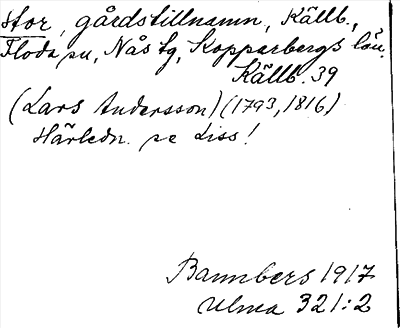 stor, gårdstillnamn, Källb.,
Floda sn, Nås tg, Kopparbergs län.
Källb. 39
(Lars Andersson) (1793, 1816)
Härledn. se Liss!
Bannbers 1917
Ulma 321:2